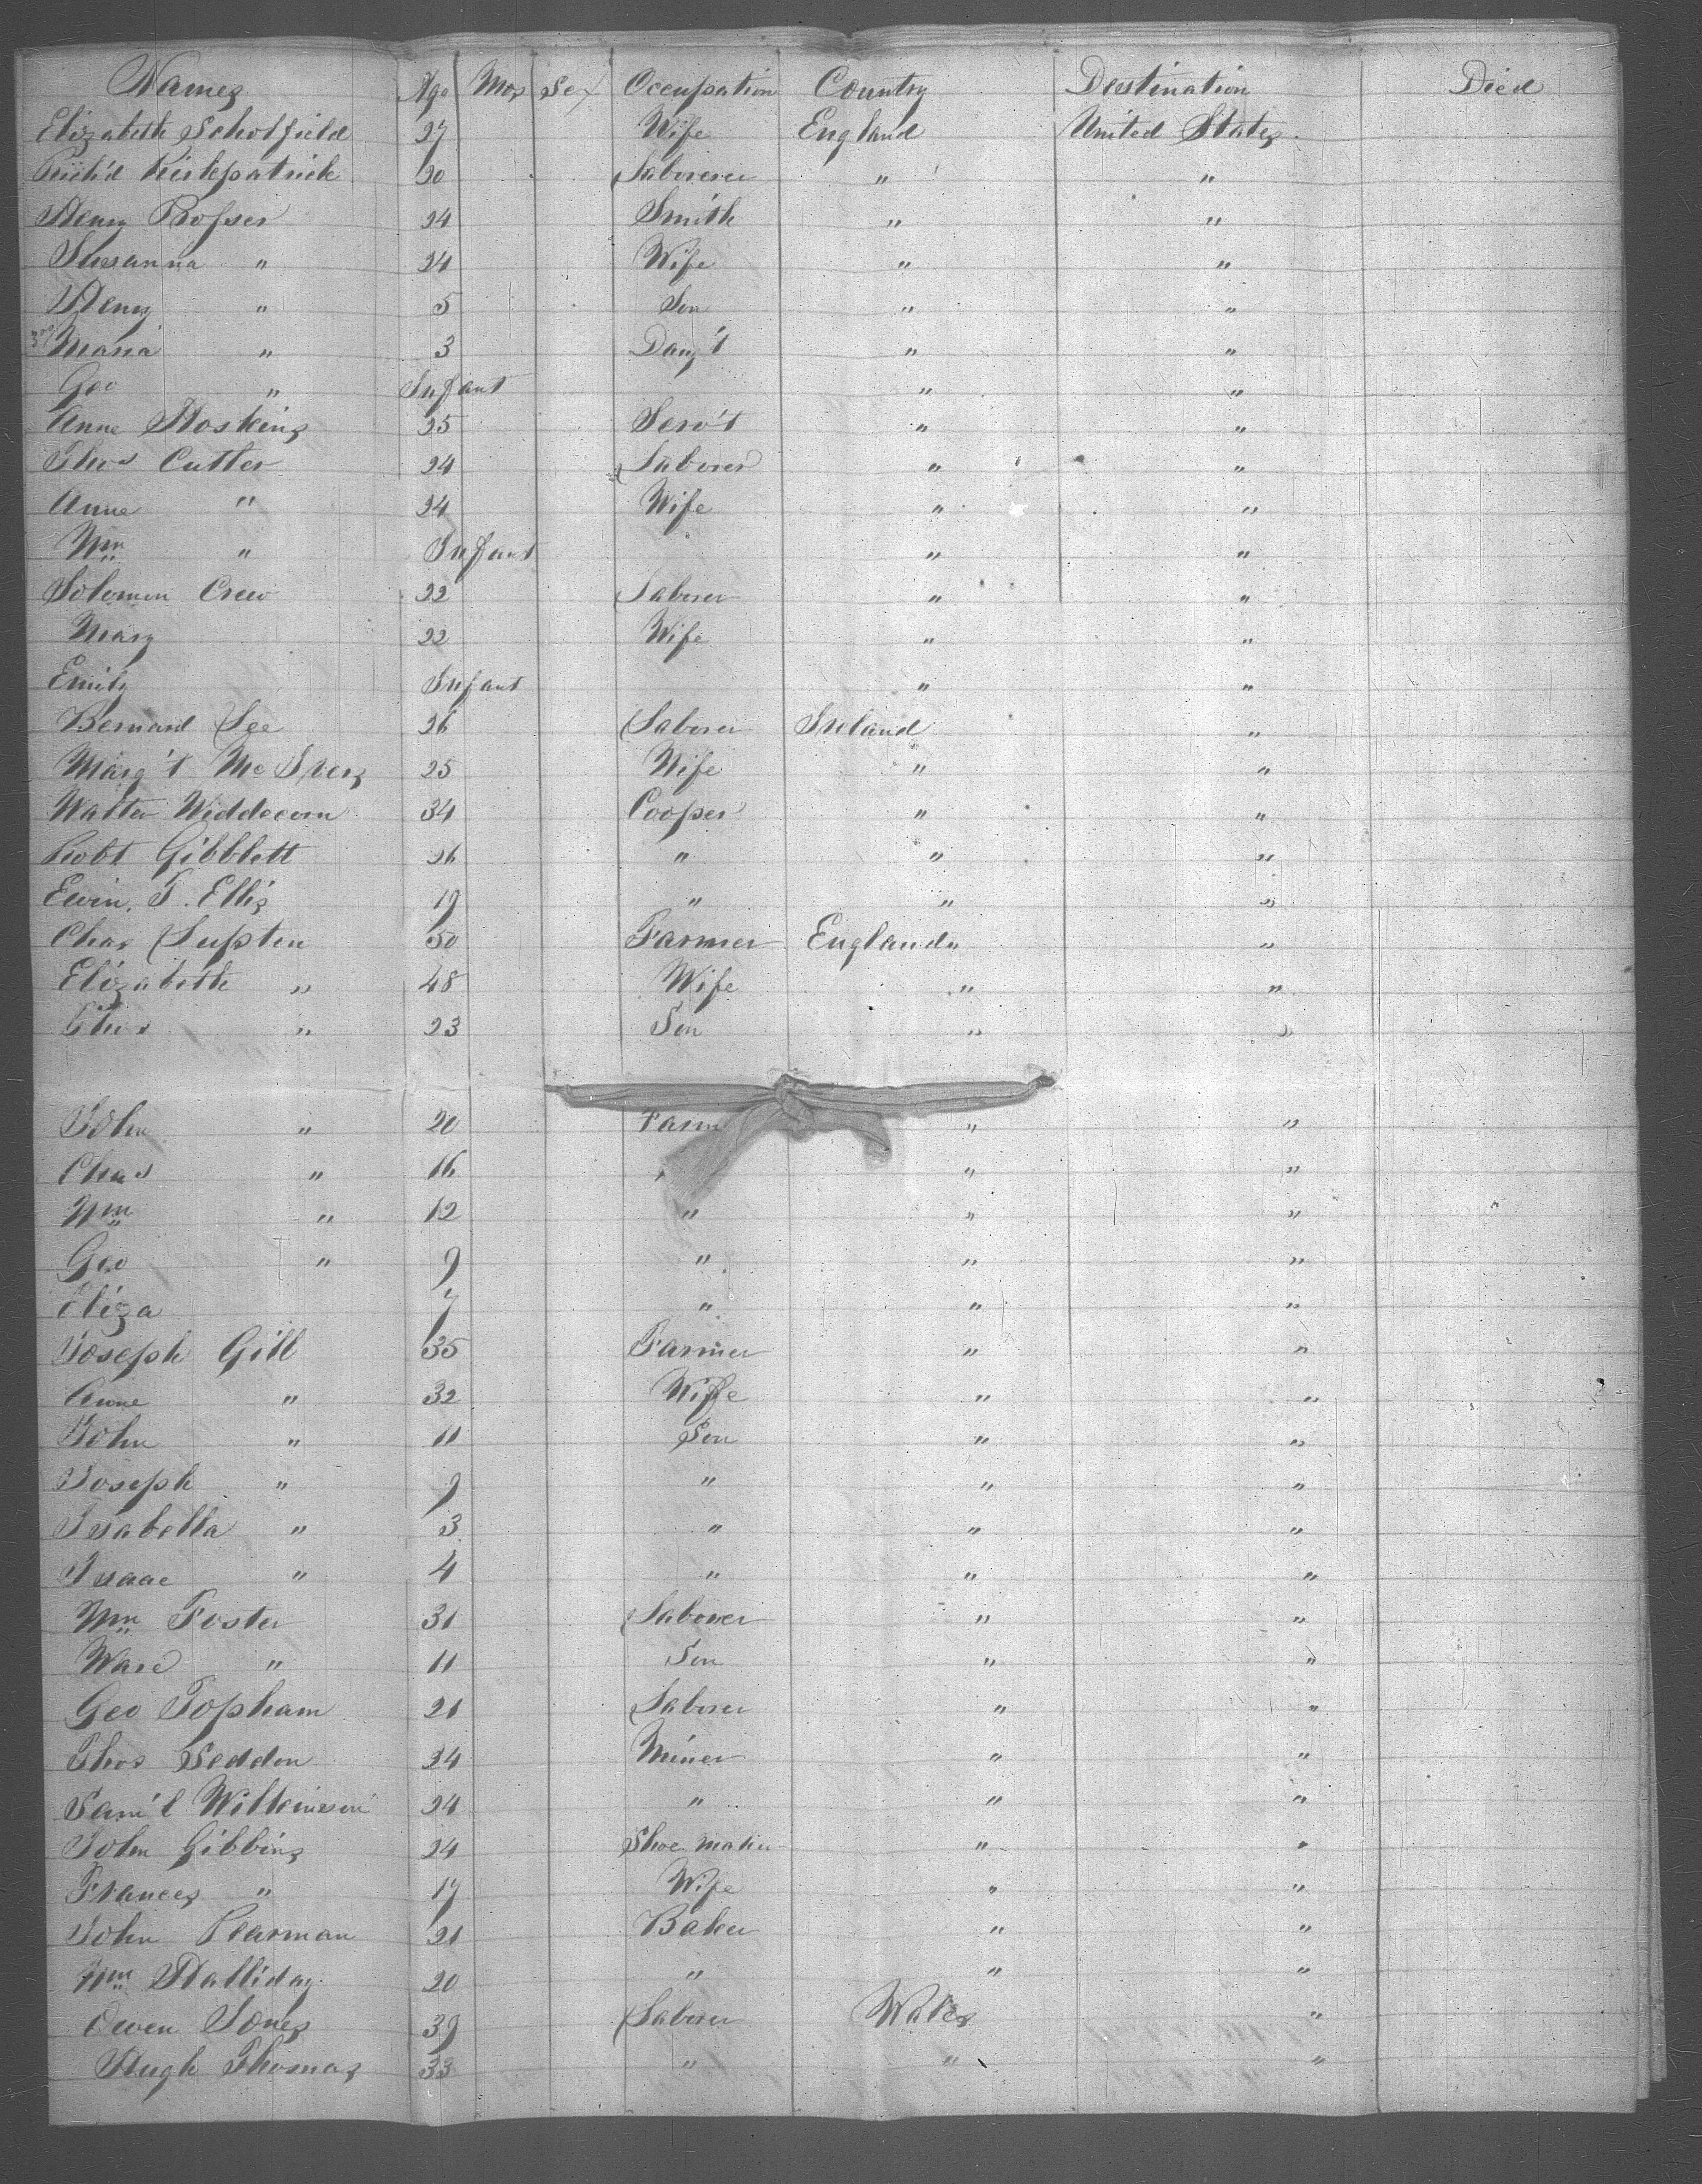 Names Age Mos Sex Occupation Country Destination Died
Elizabeth Scholfield 27 Wife England United States
Rich'd Kirkpatrick 20 Laborer " "
Henry Rosser 24 Smith " "
Susanna " 24 Wife " "
Henry " 5 Son " "
Maria " 3 Daug't " "
Geo " Infant " "
Anne Hoskins 25 Serv't " "
Thos Cutler 24 Laborer " "
Anne " 24 Wife " "
Wm " Infant " "
Solomon Crew 22 Laborer " "
Mary 22 Wife " "
Emily Infant " "
Bernard Lee 26 Laborer Ireland "
Marg't Mc 25 Wife " "
Walter Widdecom 34 Cooper " "
Robt Gibblett 26 " " "
Ewin. T. Ellis 19 " " "
Chas Lupten 50 Farmer England " "
Elizabeth " 48 Wife " "
Thos " 23 Son " "
John " 20 Farm " "
Chas " 16 " " "
Wm " 12 " " "
Geo " 9 " " "
Eliza 7 " " "
Joseph Gill 35 Farmer " "
Anne " 32 Wife " "
John " 11 Son " "
Joseph " 9 " " "
Isabella " 3 " " "
Isaac " 4 " " "
Wm Foster 31 Laborer " "
Ware " 11 Son " "
Geo Topham 21 Laborer " "
Thos Seddon 34 Miner " "
Sam'l Wilkinson 24 " " "
John Gibbins 24 Shoe maker " "
Frances " 17 Wife " "
John Pearman 21 Baker " "
Wm Halliday 20 " " "
Owen Jones 39 Laborer Wales "
Hugh Thomas 33 " " "